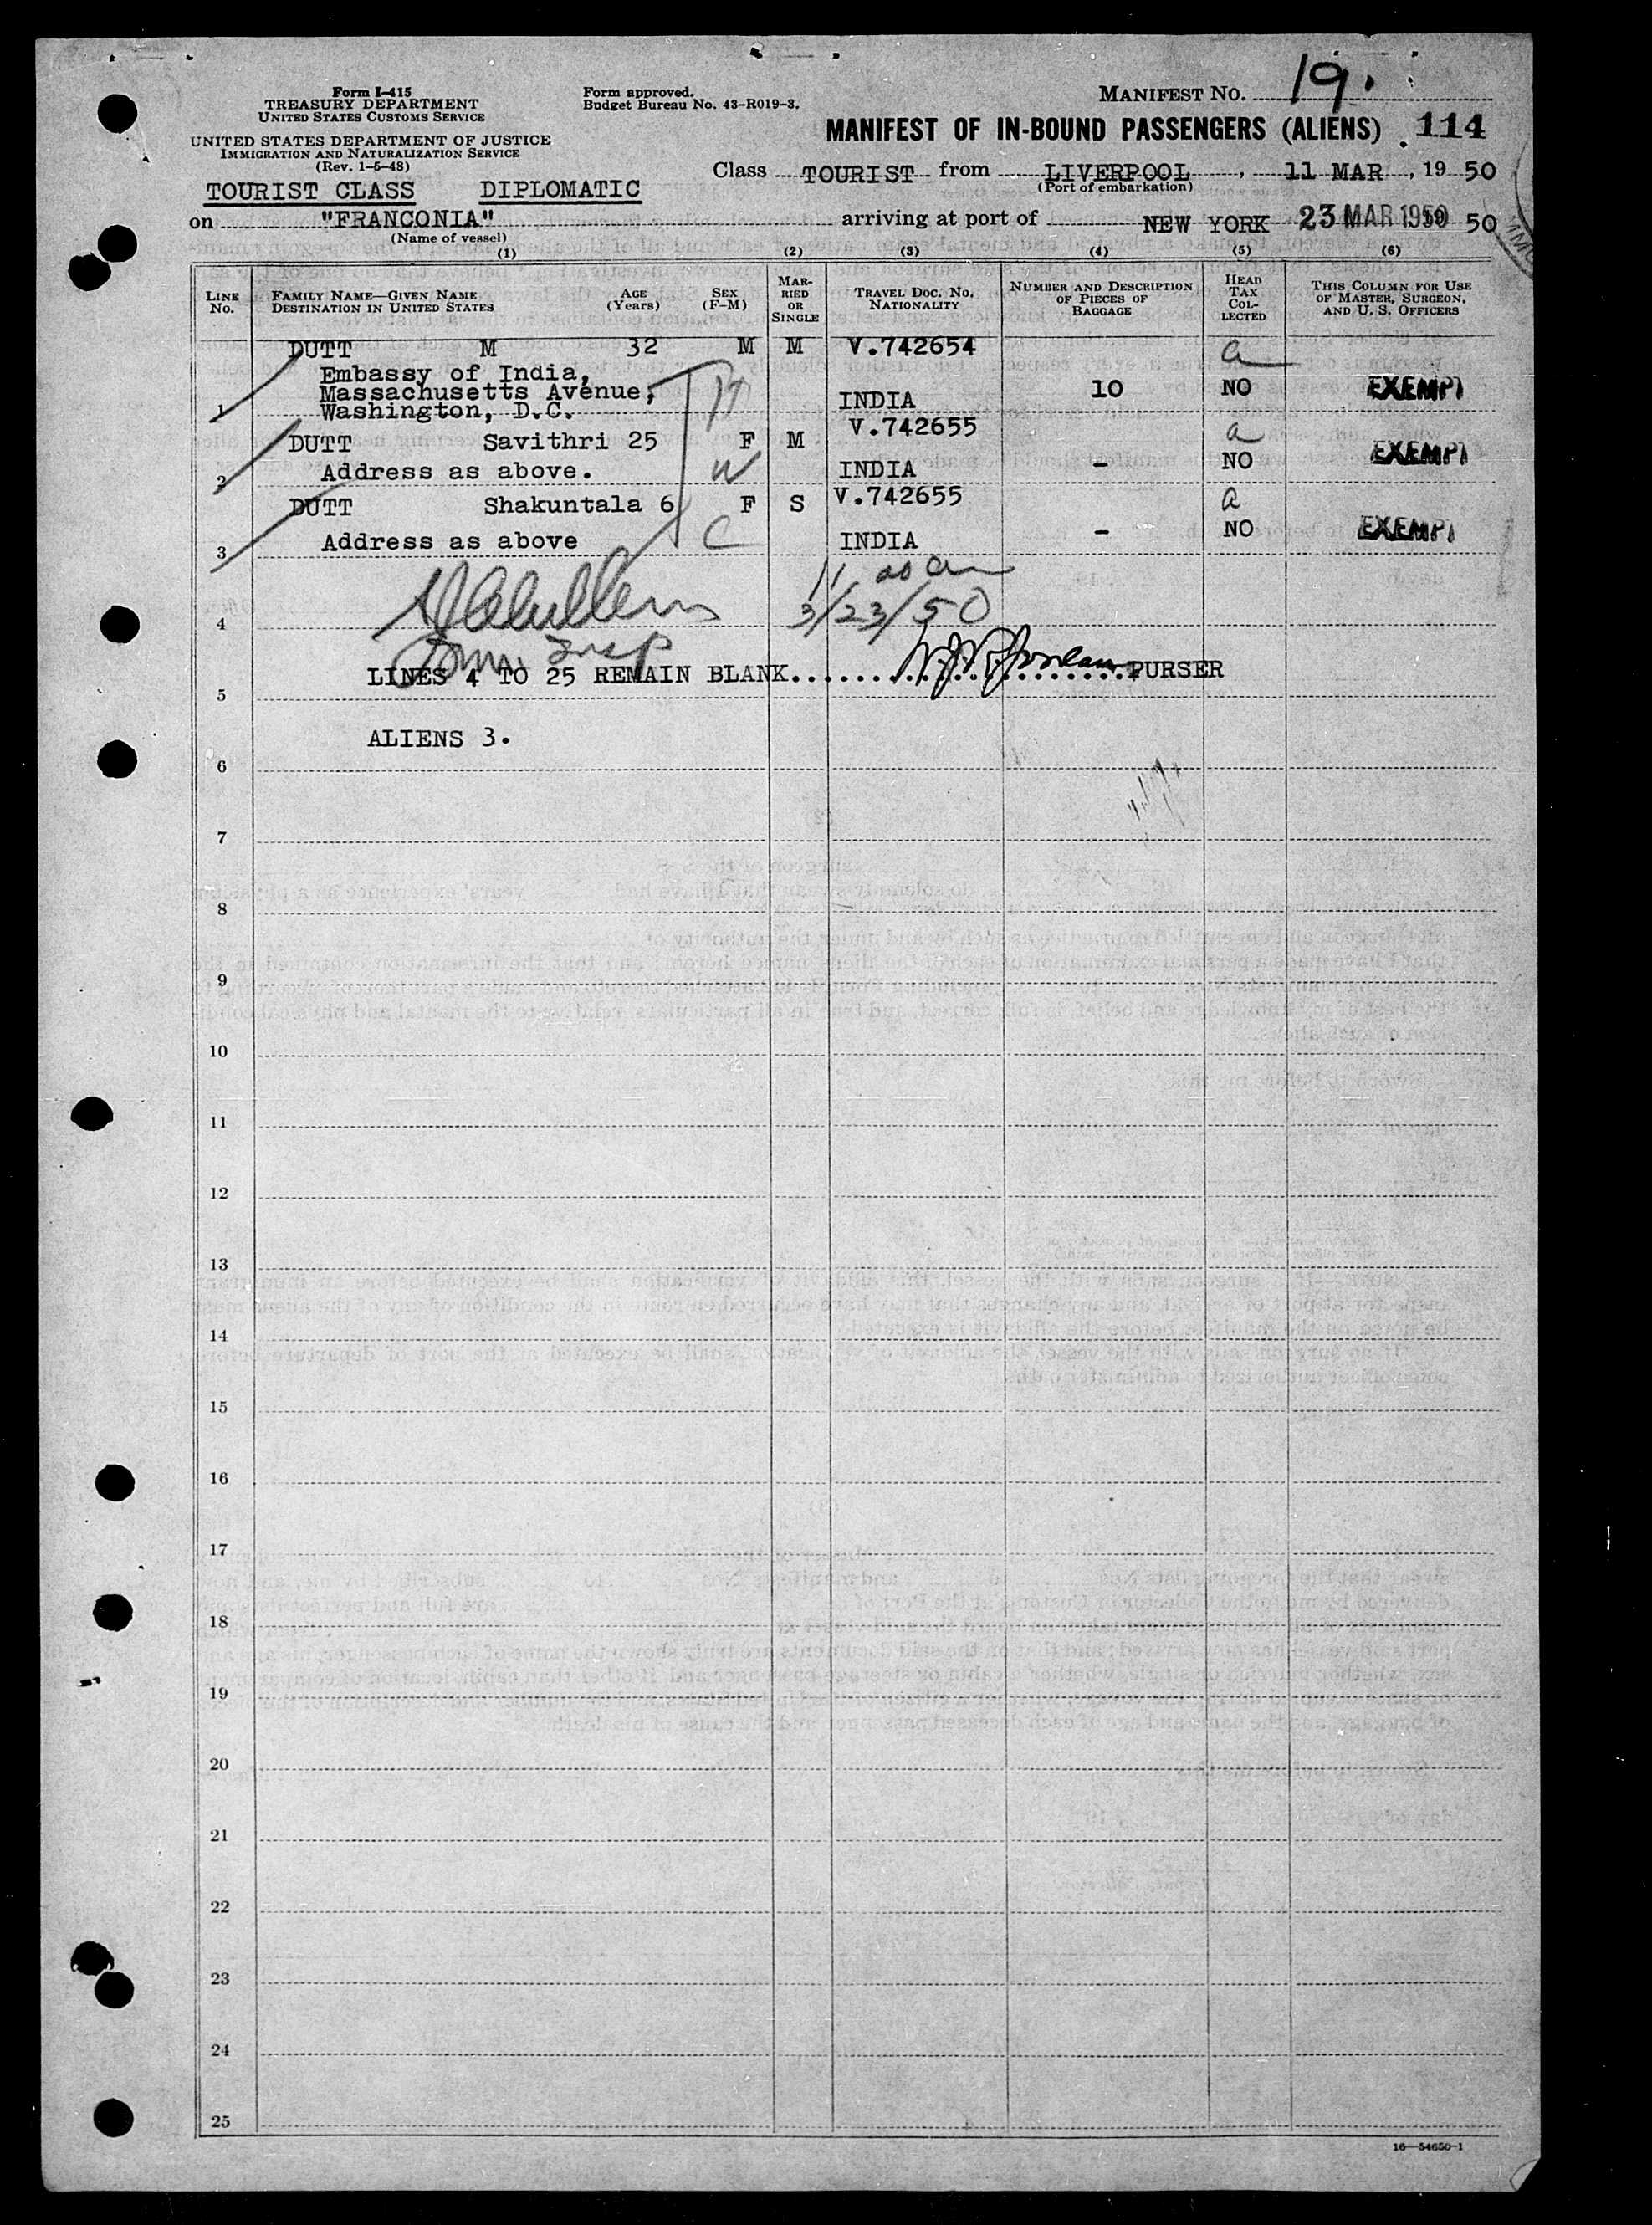 MANIFEST NO. 19.
Form I-415
TREASURY DEPARTMENT
UNITED STATES CUSTOMS SERVICE
Form approved.
Budget Bureau No. 43-R019-3.
UNITED STATES DEPARTMENT OF JUSTICE
IMMIGRATION AND NATURALIZATION SERVICE
(Rev. 1-6-48)
MANIFEST OF IN-BOUND PASSENGERS (ALIENS) 114
Class TOURIST from LIVERPOOL, 11 MAR, 19 50
(Port of embarkation)
TOURIST CLASS DIPLOMATIC
on "FRANCONIA" arriving at port of NEW YORK 23 MAR 1950 50
(Name of vessel)
(1) (2) (3) (4) (5) (6)
LINE No. FAMILY NAME—GIVEN NAME DESTINATION IN UNITED STATES AGE (Years) SEX (F-M) MARRIED OR SINGLE TRAVEL DOC. NO. NATIONALITY NUMBER AND DESCRIPTION OF PIECES OF BAGGAGE HEAD TAX COLLECTED THIS COLUMN FOR USE OF MASTER, SURGEON, AND U. S. OFFICERS
DUTT M 32 M M V.742654 a
Embassy of India,
Massachusetts Avenue, H 10 NO EXEMPT
1 Washington, D.C. INDIA
DUTT Savithri 25 F M V.742655 a
2 Address as above. W INDIA - NO EXEMPT
DUTT Shakuntala 6 F S V.742655 a
3 Address as above C INDIA - NO EXEMPT
11 00 am
4 3/23/50
Imm. Insp
LINES 4 TO 25 REMAIN BLANK.......................PURSER
5
ALIENS 3.
6
7
8
9
10
11
12
13
14
15
16
17
18
19
20
21
22
23
24
25
16—54650-1